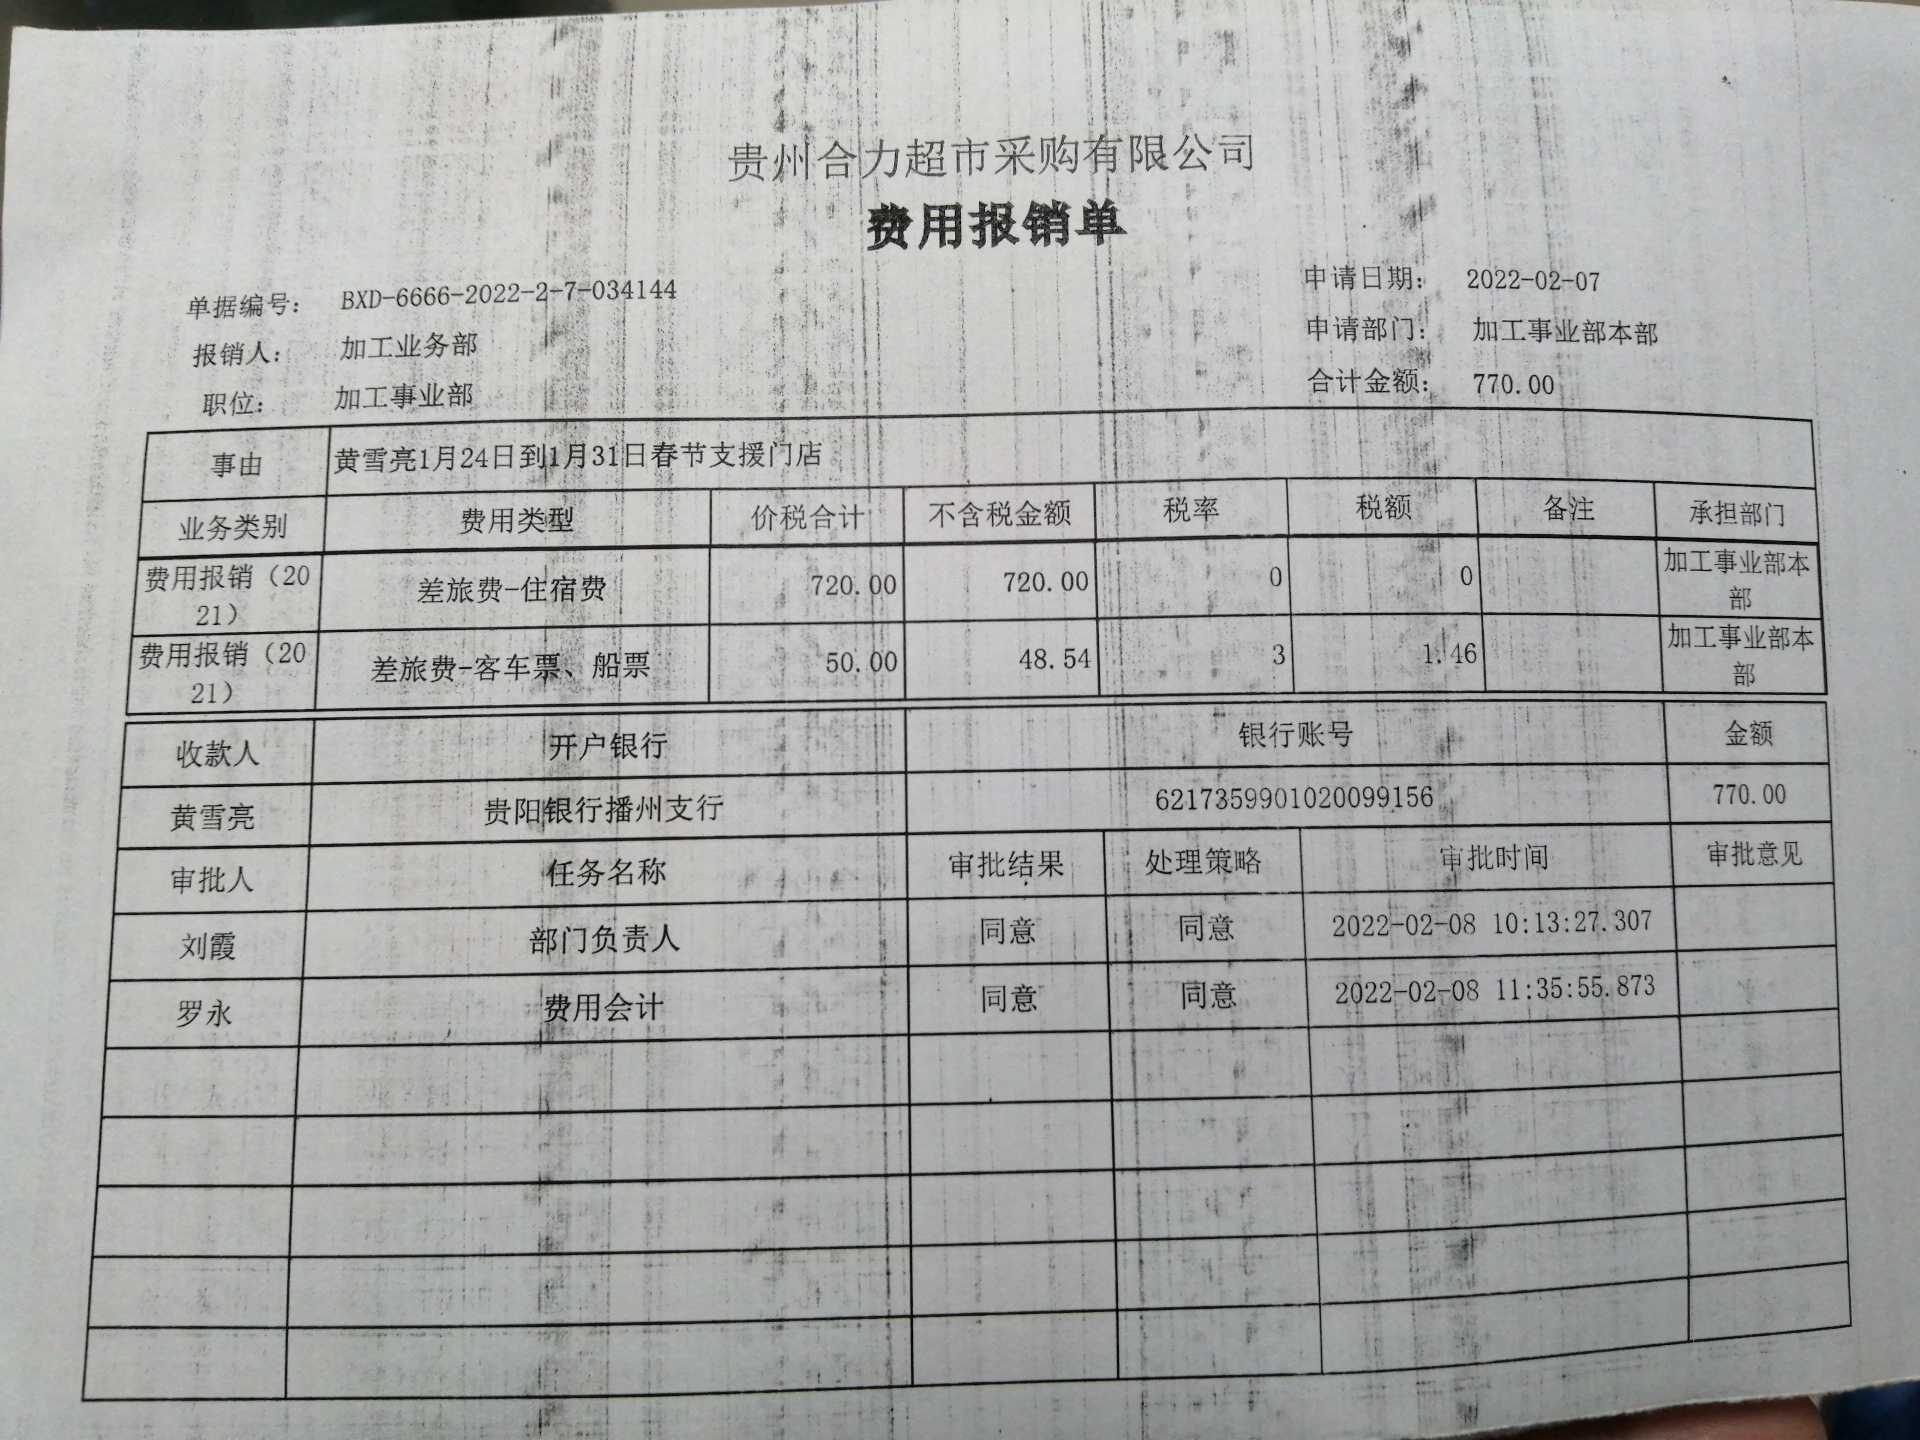 贵州合力超市采购有限公司
费用报销单
单据编号： BXD-6666-2022-2-7-034144 申请日期： 2022-02-07
报销人： 加工业务部 申请部门： 加工事业部本部
职位： 加工事业部 合计金额： 770.00
事由 黄雪亮1月24日到1月31日春节支援门店
业务类别 费用类型 价税合计 不含税金额 税率 税额 备注 承担部门
费用报销（20 差旅费-住宿费 720.00 720.00 0 0 加工事业部本
21） 部
费用报销（20 差旅费-客车票、船票 50.00 48.54 3 1.46 加工事业部本
21） 部
收款人 开户银行 银行账号 金额
黄雪亮 贵阳银行播州支行 6217359901020099156 770.00
审批人 任务名称 审批结果 处理策略 审批时间 审批意见
刘霞 部门负责人 同意 同意 2022-02-08 10:13:27.307
罗永 费用会计 同意 同意 2022-02-08 11:35:55.873